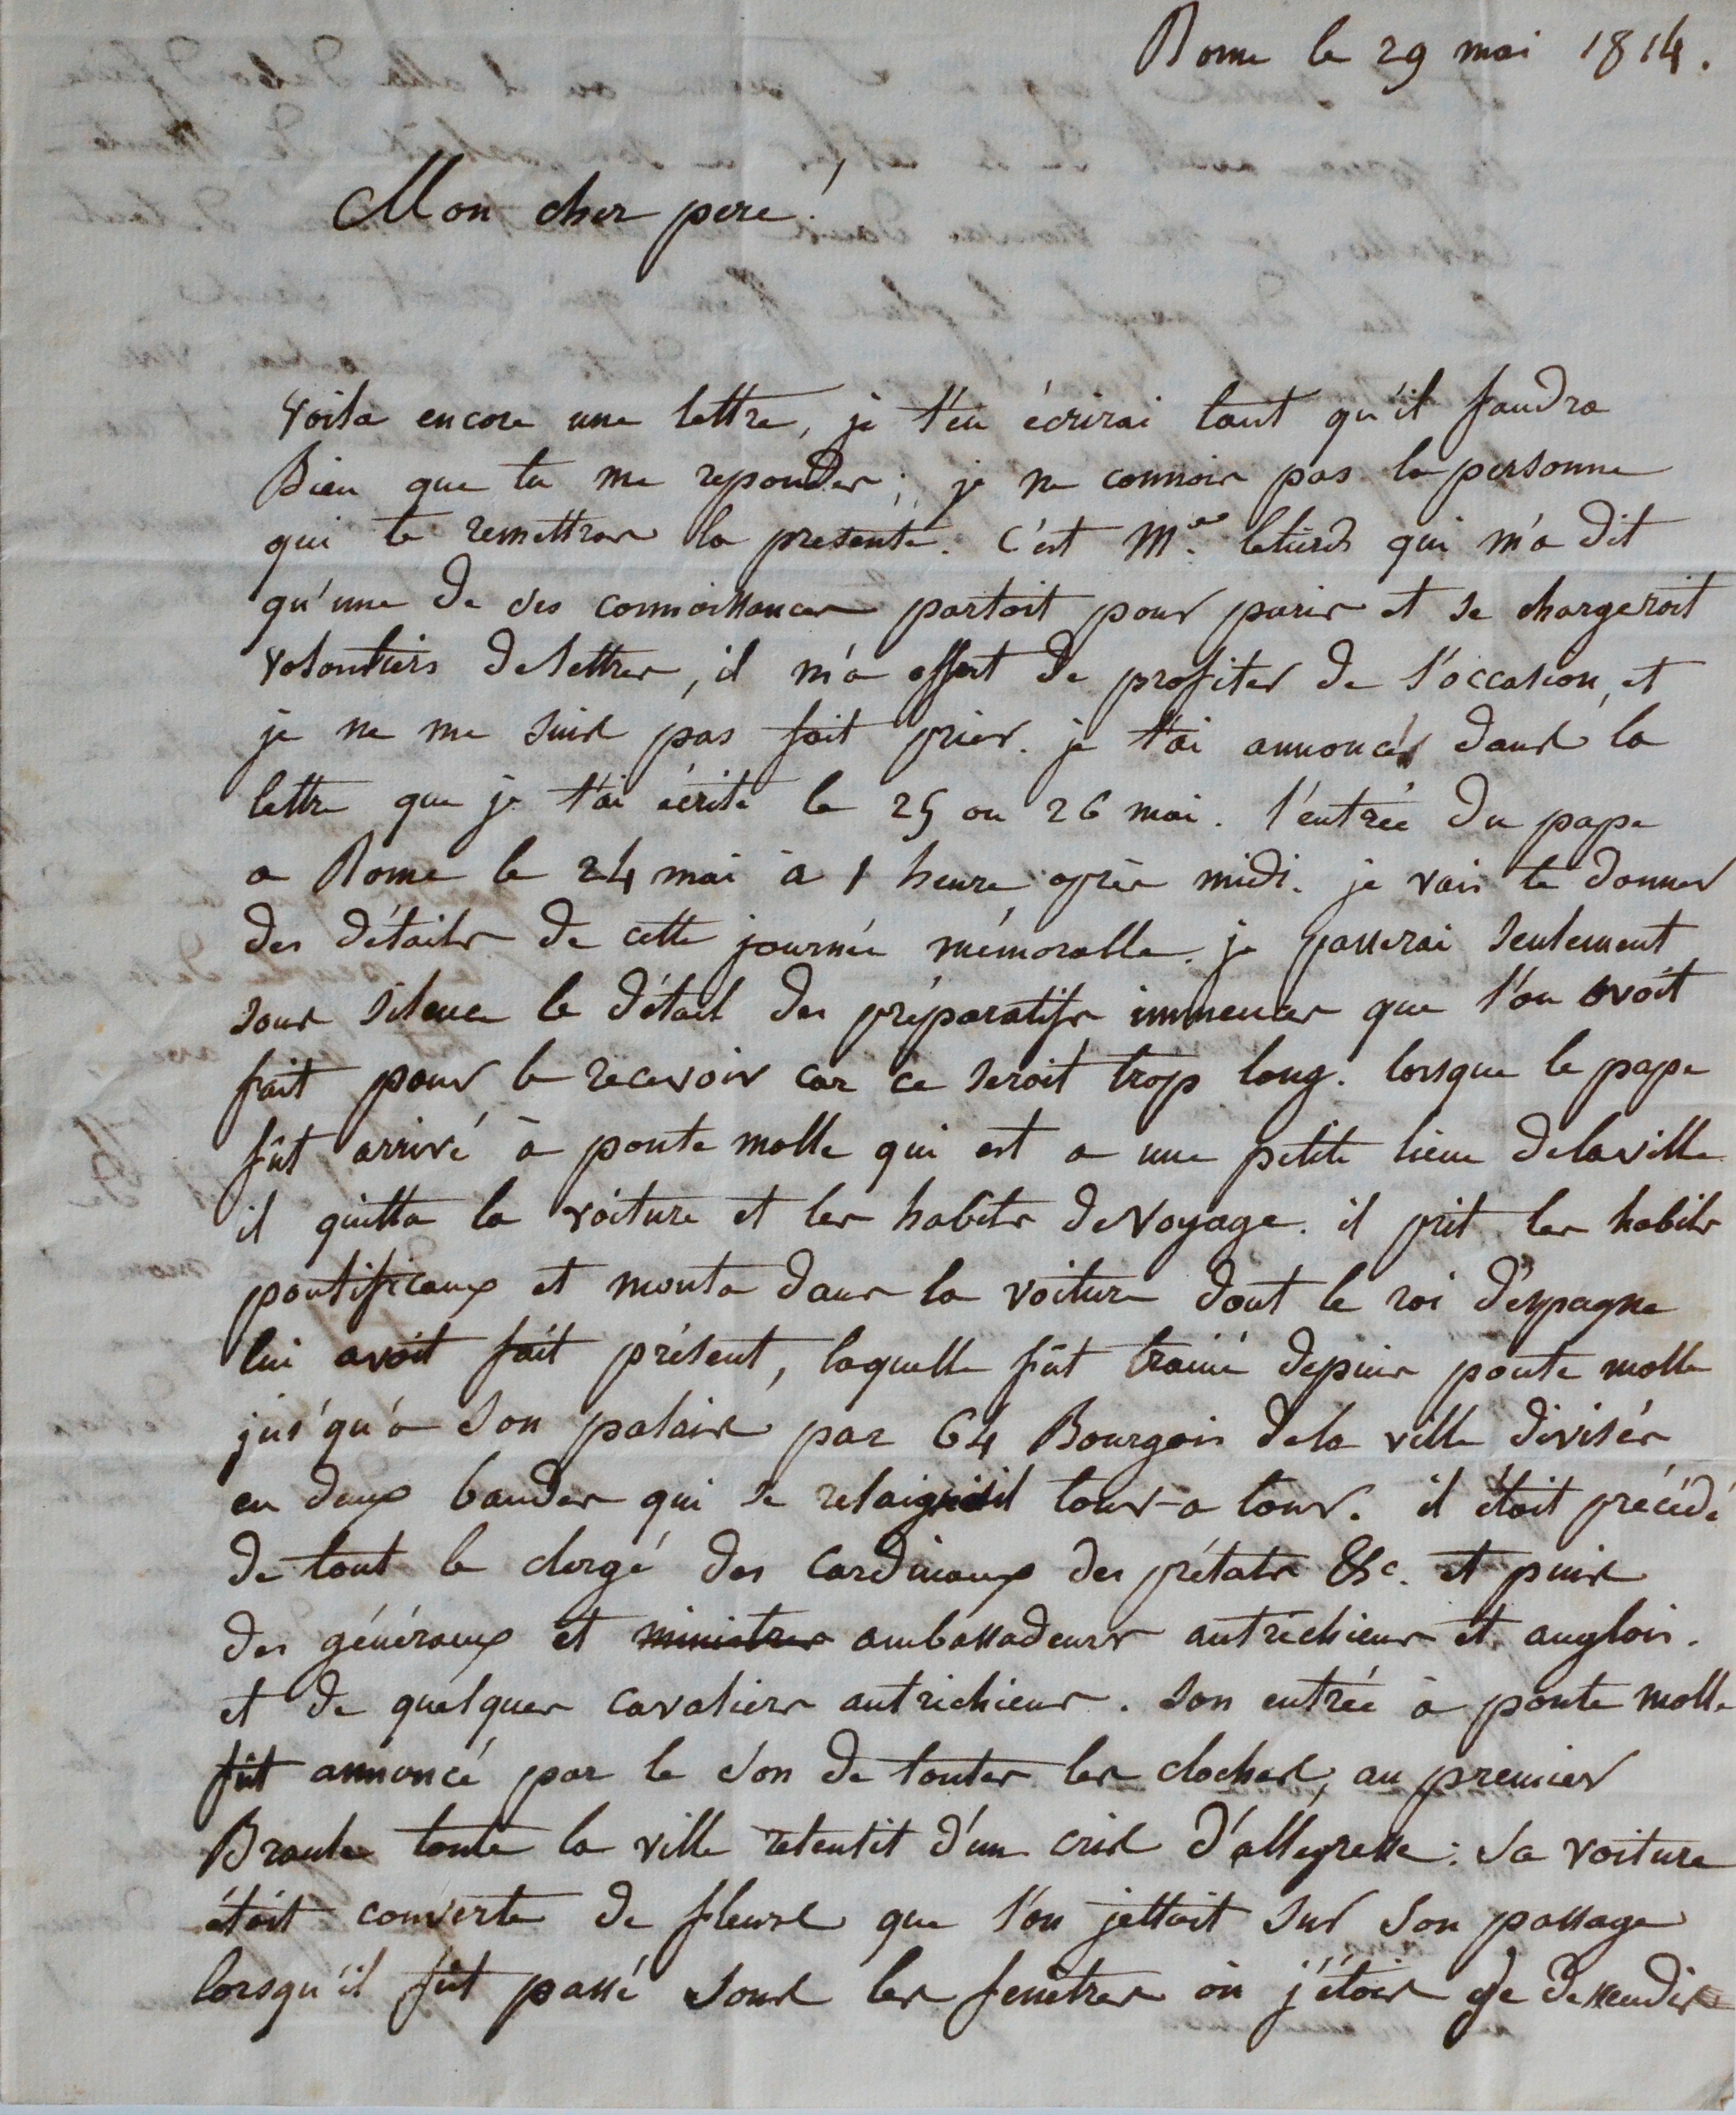 Rome le 29 mai 1814.
Mon cher pere!
Voila encore une lettre, je t'en écrirai tant qu'il faudra
Bien que tu me repondes; je ne connois pas la personne
qui te remettras la presente. c'est Mr. qui m'a dit
qu'une de ses connoissances partoit pour paris et se chargeroit
volontiers de lettres, il m'a offert de profiter de l'occasion, et
je ne me suis pas fait prier. je t'ai annoncé dans la
lettre que je t'ai écrite le 25 ou 26 mai. l'entrée du pape
a Rome le 24 mai à 1 heure après midi. je vais te donner
des détails de cette journée mémorable. je passerai seulement
sous silence le détail des préparatifs immenses que l'on avoit
fait pour le recevoir car ce seroit trop long. lorsque le pape
fût arrivé à ponte molle qui est a une petite lieue de la ville
il quitta la voiture et les habits de voyage. il prit les habits
pontificaux et monta dans la voiture dont le roi d'espagne
lui avoit fait présent, laquelle fût trainé depuis ponte molle
jus'qu'a son palais par 64 Bourgois de la ville divisés
en deux bandes qui se tour-a tour. il étoit précédé
de tout le clergé des cardinaux des prélats &c. et puis
des généraux et ministres ambassadeurs autrichiens et anglois.
et de quelques cavaliers autrichiens. son entrée à ponte molle
fût annoncé par le son de toutes les cloches, au premier
Branle toute la ville retentit d'un cris d'allegresse: sa voiture
étoit couverte de fleurs que l'on jettoit sur son passage
lorsqu'il fût passé sous les fenêtres où j'étois je dessendis